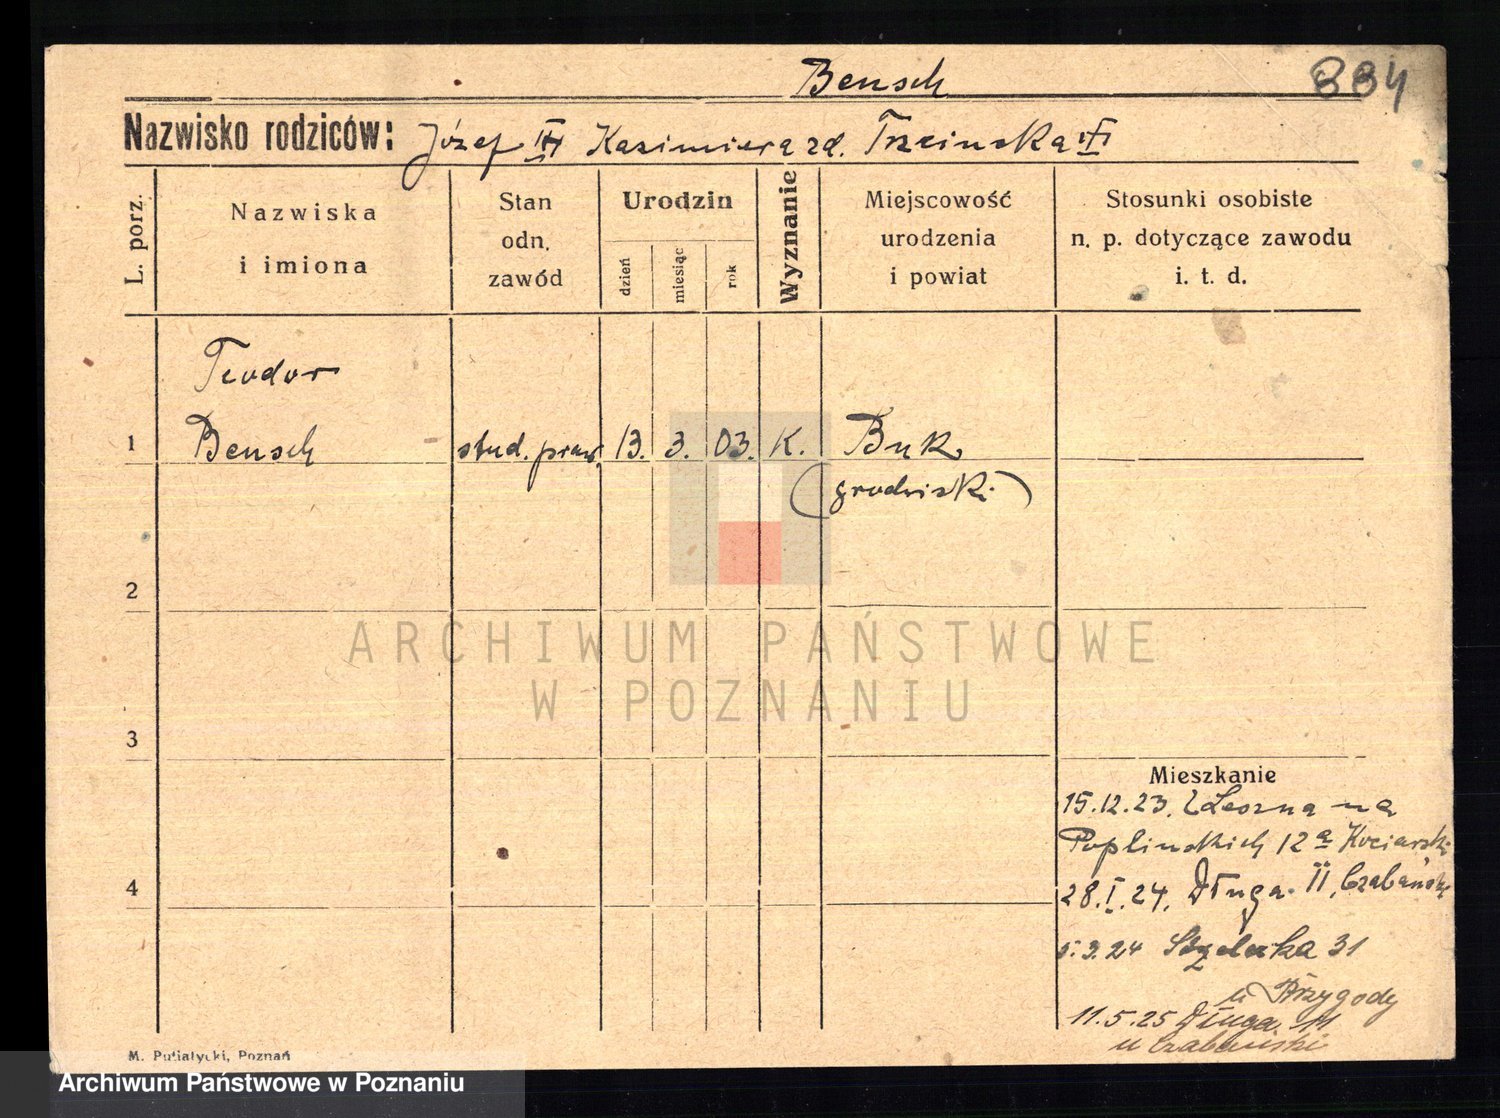 Bensch
884
Nazwisko rodziców: Józef Kazimiera zd. Trzcinska
L. porz.
Nazwiska
i imiona
Stan
odn.
zawód
Urodzin
dzień
miesiąc
rok
Wyznanie
Miejscowość
urodzenia
i powiat
Stosunki osobiste
n. p. dotyczące zawodu
i. t. d.
Teodor
1 Bensch stud. praw. 13. 3. 03. K. Buk
(grodziski)
2
ARCHIWUM PAŃSTWOWE
W POZNANIU
3
Mieszkanie
15.12.23. na
Poplinskich 12a
4
28.I.24. Długa
5.3.24 31
u Przygody
11.5.25 Długa 11
u Czabański
M. Putiatycki, Poznań
Archiwum Państwowe w Poznaniu